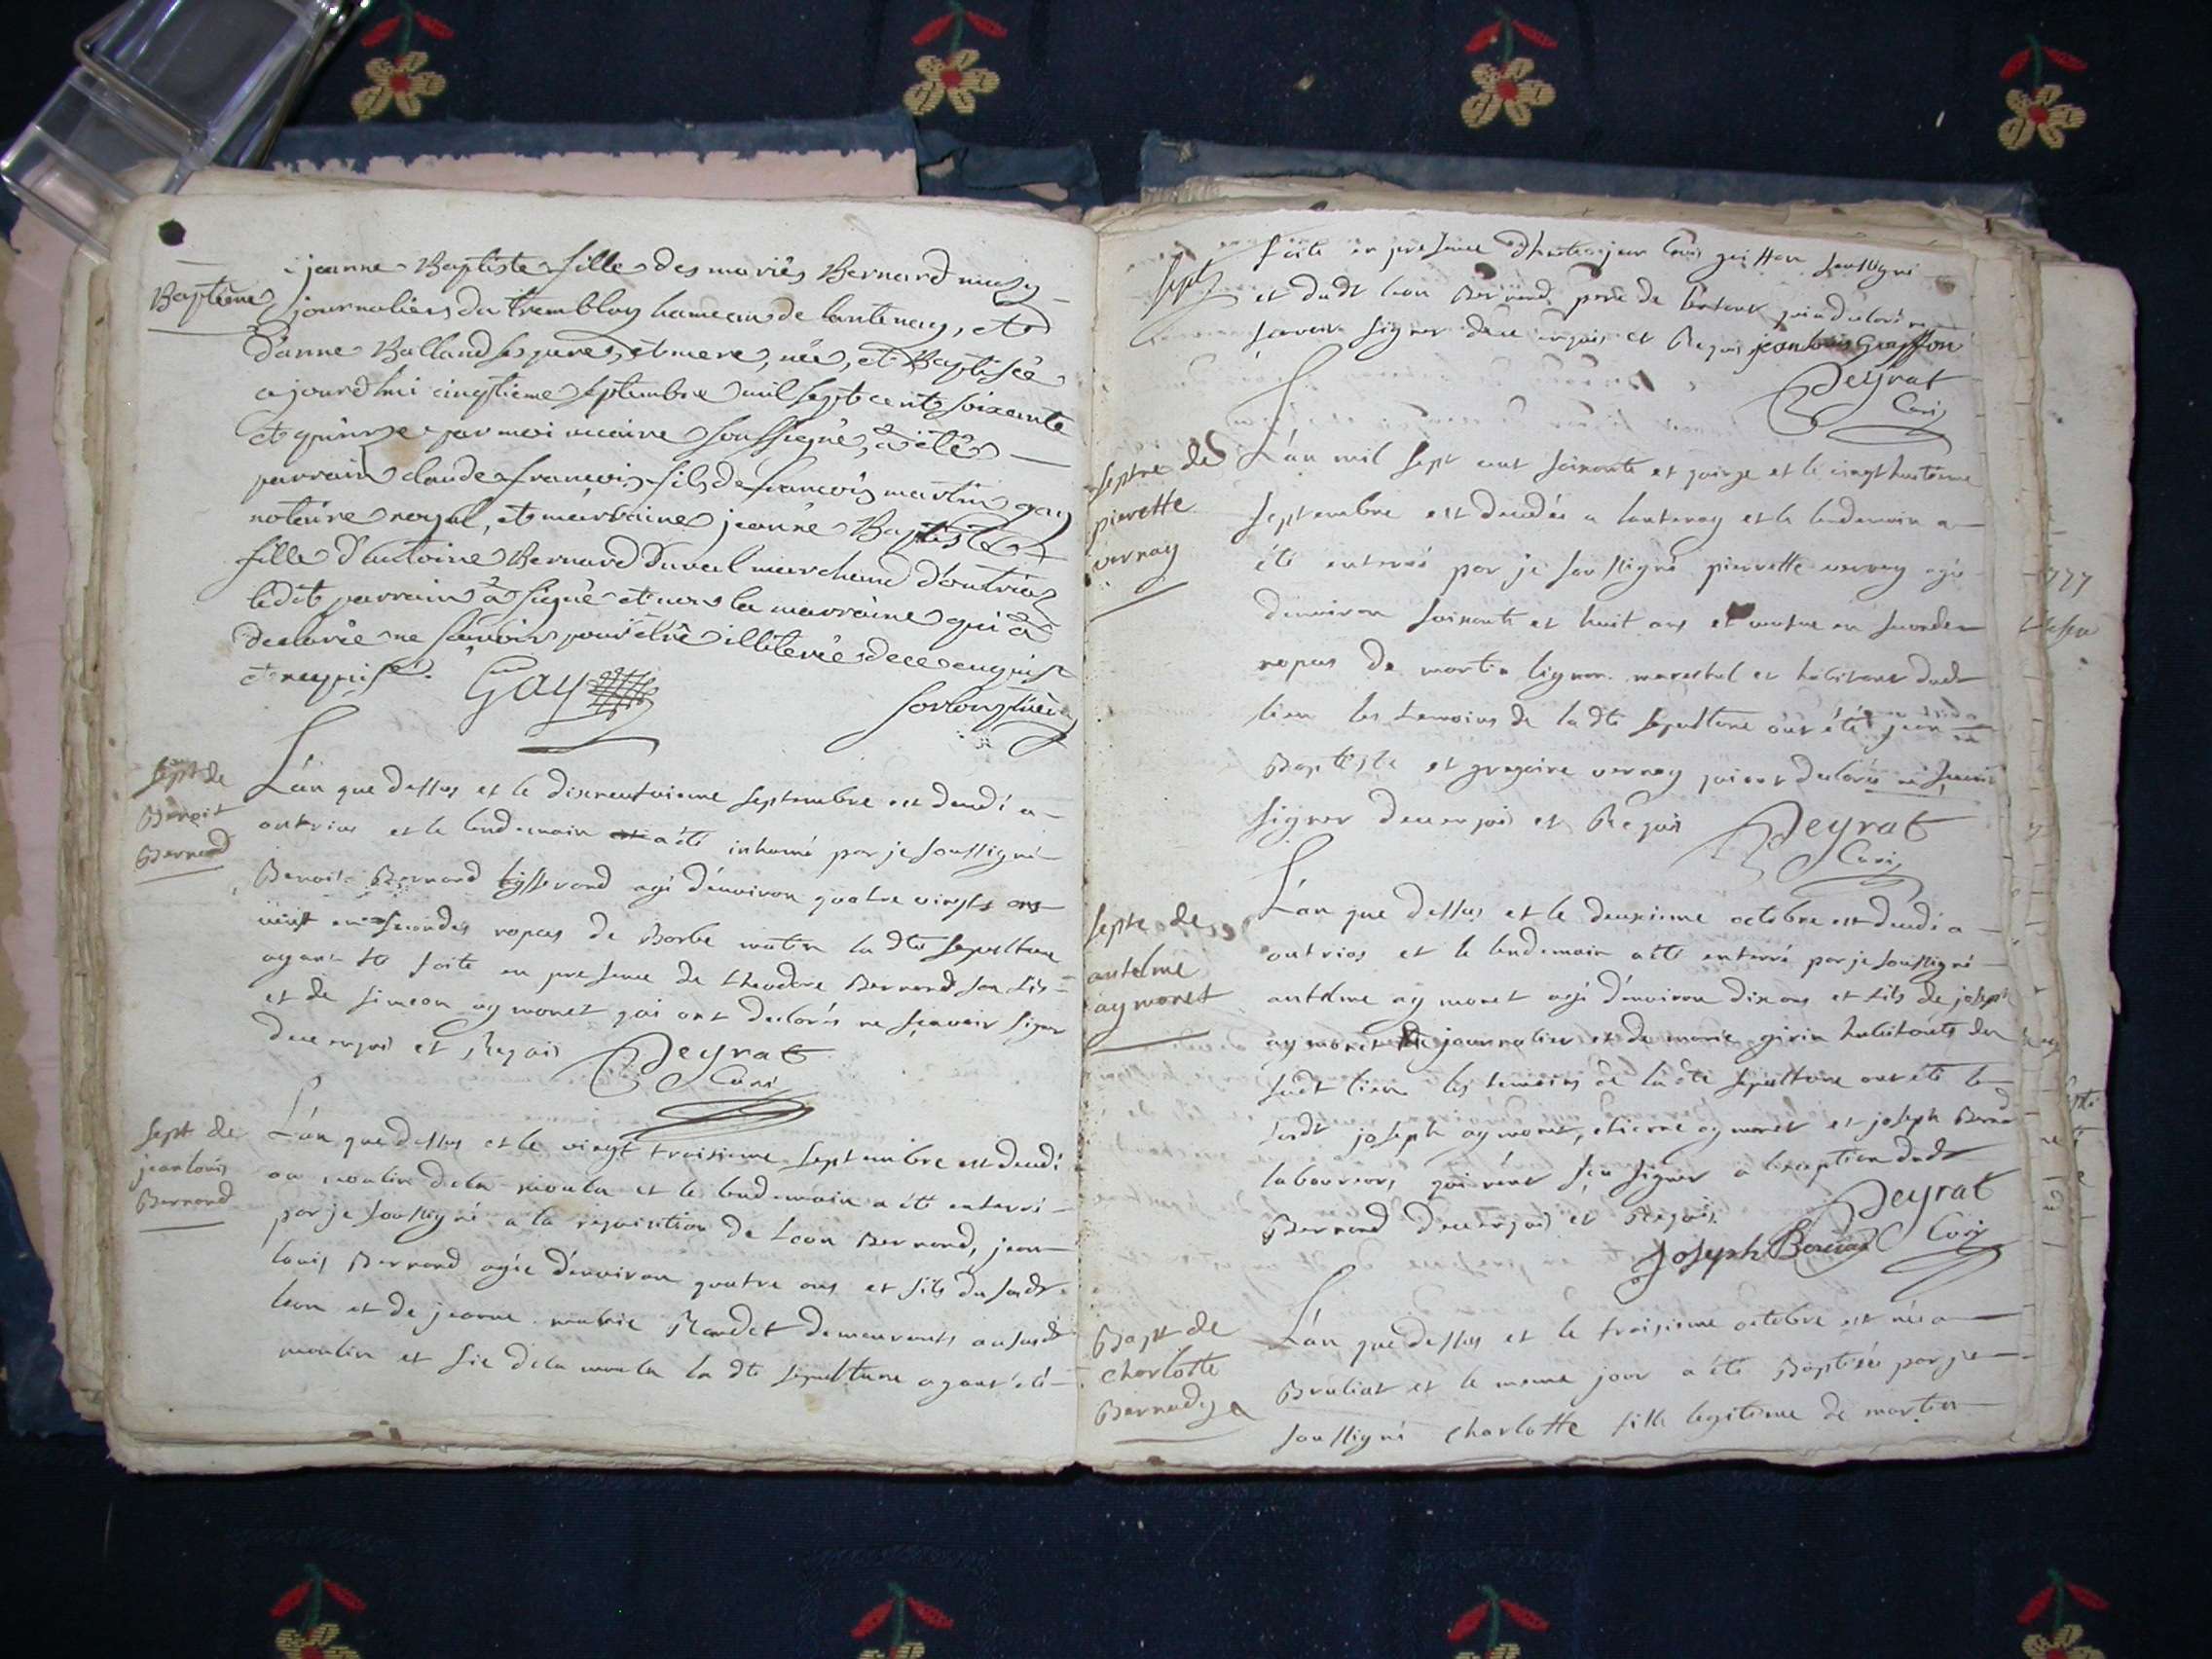 Baptême
jeanne Baptiste fille des mariés Bernard
journaliers du tremblay hameau de lantenay, et
d'anne Balland ses pere, et mere, née, et Baptisée
ajourdhui septembre mil sept cents soixante
et quinze par moi vicaire soussigné, à été
parrain claude françois fils de françois martin gay
notaire royal, et marraine jeanne Baptiste
fille d'antoine Bernard marchand d'outriaz
ledit parrain à signé et non la marraine qui à
declarée ne savoir pour être illiterée de ce enquise
et requise. Gay
sept de
Benoit
Bernard
L'an que dessus et le septembre est decedé a
outrias et le lendemain a été inhumé par je soussigné
Benoit Bernard tisserand agé d'environ quatre vingts ans
en secondes nopces de Barbe la dte sepulture
ayant été faite en presence de theodore Bernard son fils
et de simeon aymonet qui ont declarés ne sçavoir signer
de ce enquis et Requis Peyrat
Curé
sept de
jean louis
Bernard
L'an que dessus et le vingt troisieme septembre est decedé
au moulin de la et le lendemain a été enterré
par je soussigné a la requisition de Leon Bernard, jean
louis Bernard agé d'environ quatre ans et fils du susdt
leon et de jeanne demeurants au susdt
moulin et sie de la la dte sepulture ayant été
faite en presence jean louis soussigné
et dudt leon Bernard pere de l'enfant qui a declaré ne
sçavoir signer de ce enquis et Requis jean louis
Peyrat
Curé
septre de
pierette
vernay
L'an mil sept cent soixante et quinze et le vingt huitieme
septembre est decedée a lantenay et le lendemain a
été enterrée par je soussigné pierrette vernay agée
d'environ soixante et huit ans et en secondes
nopces de martin lignon marechal et habitant dudt
lieu les temoins de la dte sepulture ont été jean
Baptiste et gregoire vernay qui ont declarés ne sçavoir
signer de ce enquis et Requis Peyrat
Curé
septe de
antelme
aymonet
L'an que dessus et le deuxieme octobre est decedé a
outrias et le lendemain a été enterré par je soussigné
antelme aymonet agé d'environ dix ans et fils de joseph
aymonet journalier et de marie girin habitants du
sudt lieu les temoins de la dte sepulture ont été le
susdt joseph aymonet, etienne aymonet et joseph Bernard
laboureurs, qui n'ont sçu signer a l'exception dudt
Bernard de ce enquis et Requis. Peyrat
Joseph Bernard Curé
Bapt de
charlotte
L'an que dessus et le troisieme octobre est née a
Bruliat et le meme jour a été Baptisée par je
soussigné charlotte fille legitime de martin